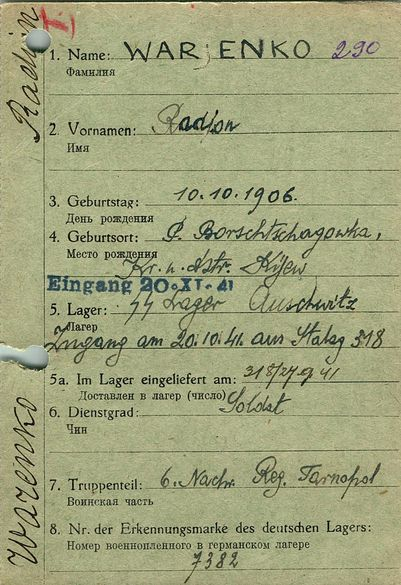 Radion
1. Name: WARJENKO 290
Фамилия
2. Vornamen: Radion
Имя
3. Geburtstag: 10.10.1906.
День рождения
4. Geburtsort: P. Borschtschagowka,
Место рождения
Kr. u. dstr. Kijew
Eingang 20. XI. 41
5. Lager: SS Lager Auschwitz
Лагерь
Zugang am 20.10.41. aus Stalag 318
5a. Im Lager eingeliefert am: 318/27.9.41
Доставлен в лагерь (число)
6. Dienstgrad: Soldat
Чин
7. Truppenteil: 6. Nachr. Reg. Tarnopol
Воинская часть
8. Nr. der Erkennungsmarke des deutschen Lagers:
Номер военнопленного в германском лагере
7382
Warenko